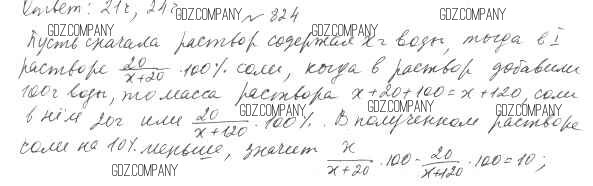 Ответ: 21ч, 24ч
GDZ.COMPANY
№ 824
GDZ.COMPANY
GDZ.COMPANY GDZ.COMPANY
Пусть сначала раствор содержал x г воды, тогда в I
растворе 20/(x+20) · 100% соли, когда в раствор добавили
100г воды, то масса раствора x+20+100=x+120, соли
GDZ.COMPANY GDZ.COMPANY
в нём 20г или 20/(x+120) · 100%. В полученном растворе
соли на 10% меньше, значит x/(x+20) · 100 - 20/(x+120) · 100 = 10;
GDZ.COMPANY
GDZ.COMPANY